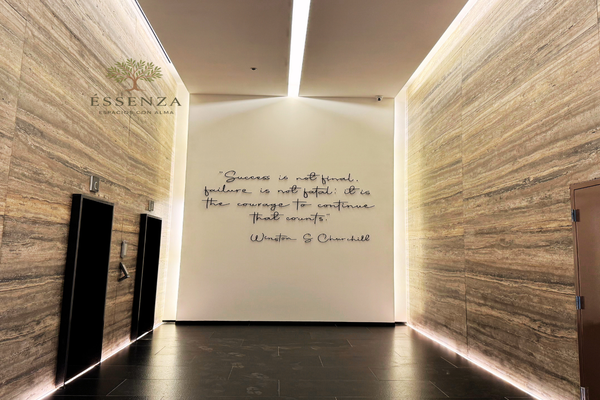 ÉSSENZA
ESPACIOS CON ALMA
"Success is not final,
failure is not fatal: it is
the courage to continue
that counts."
Winston S Churchill